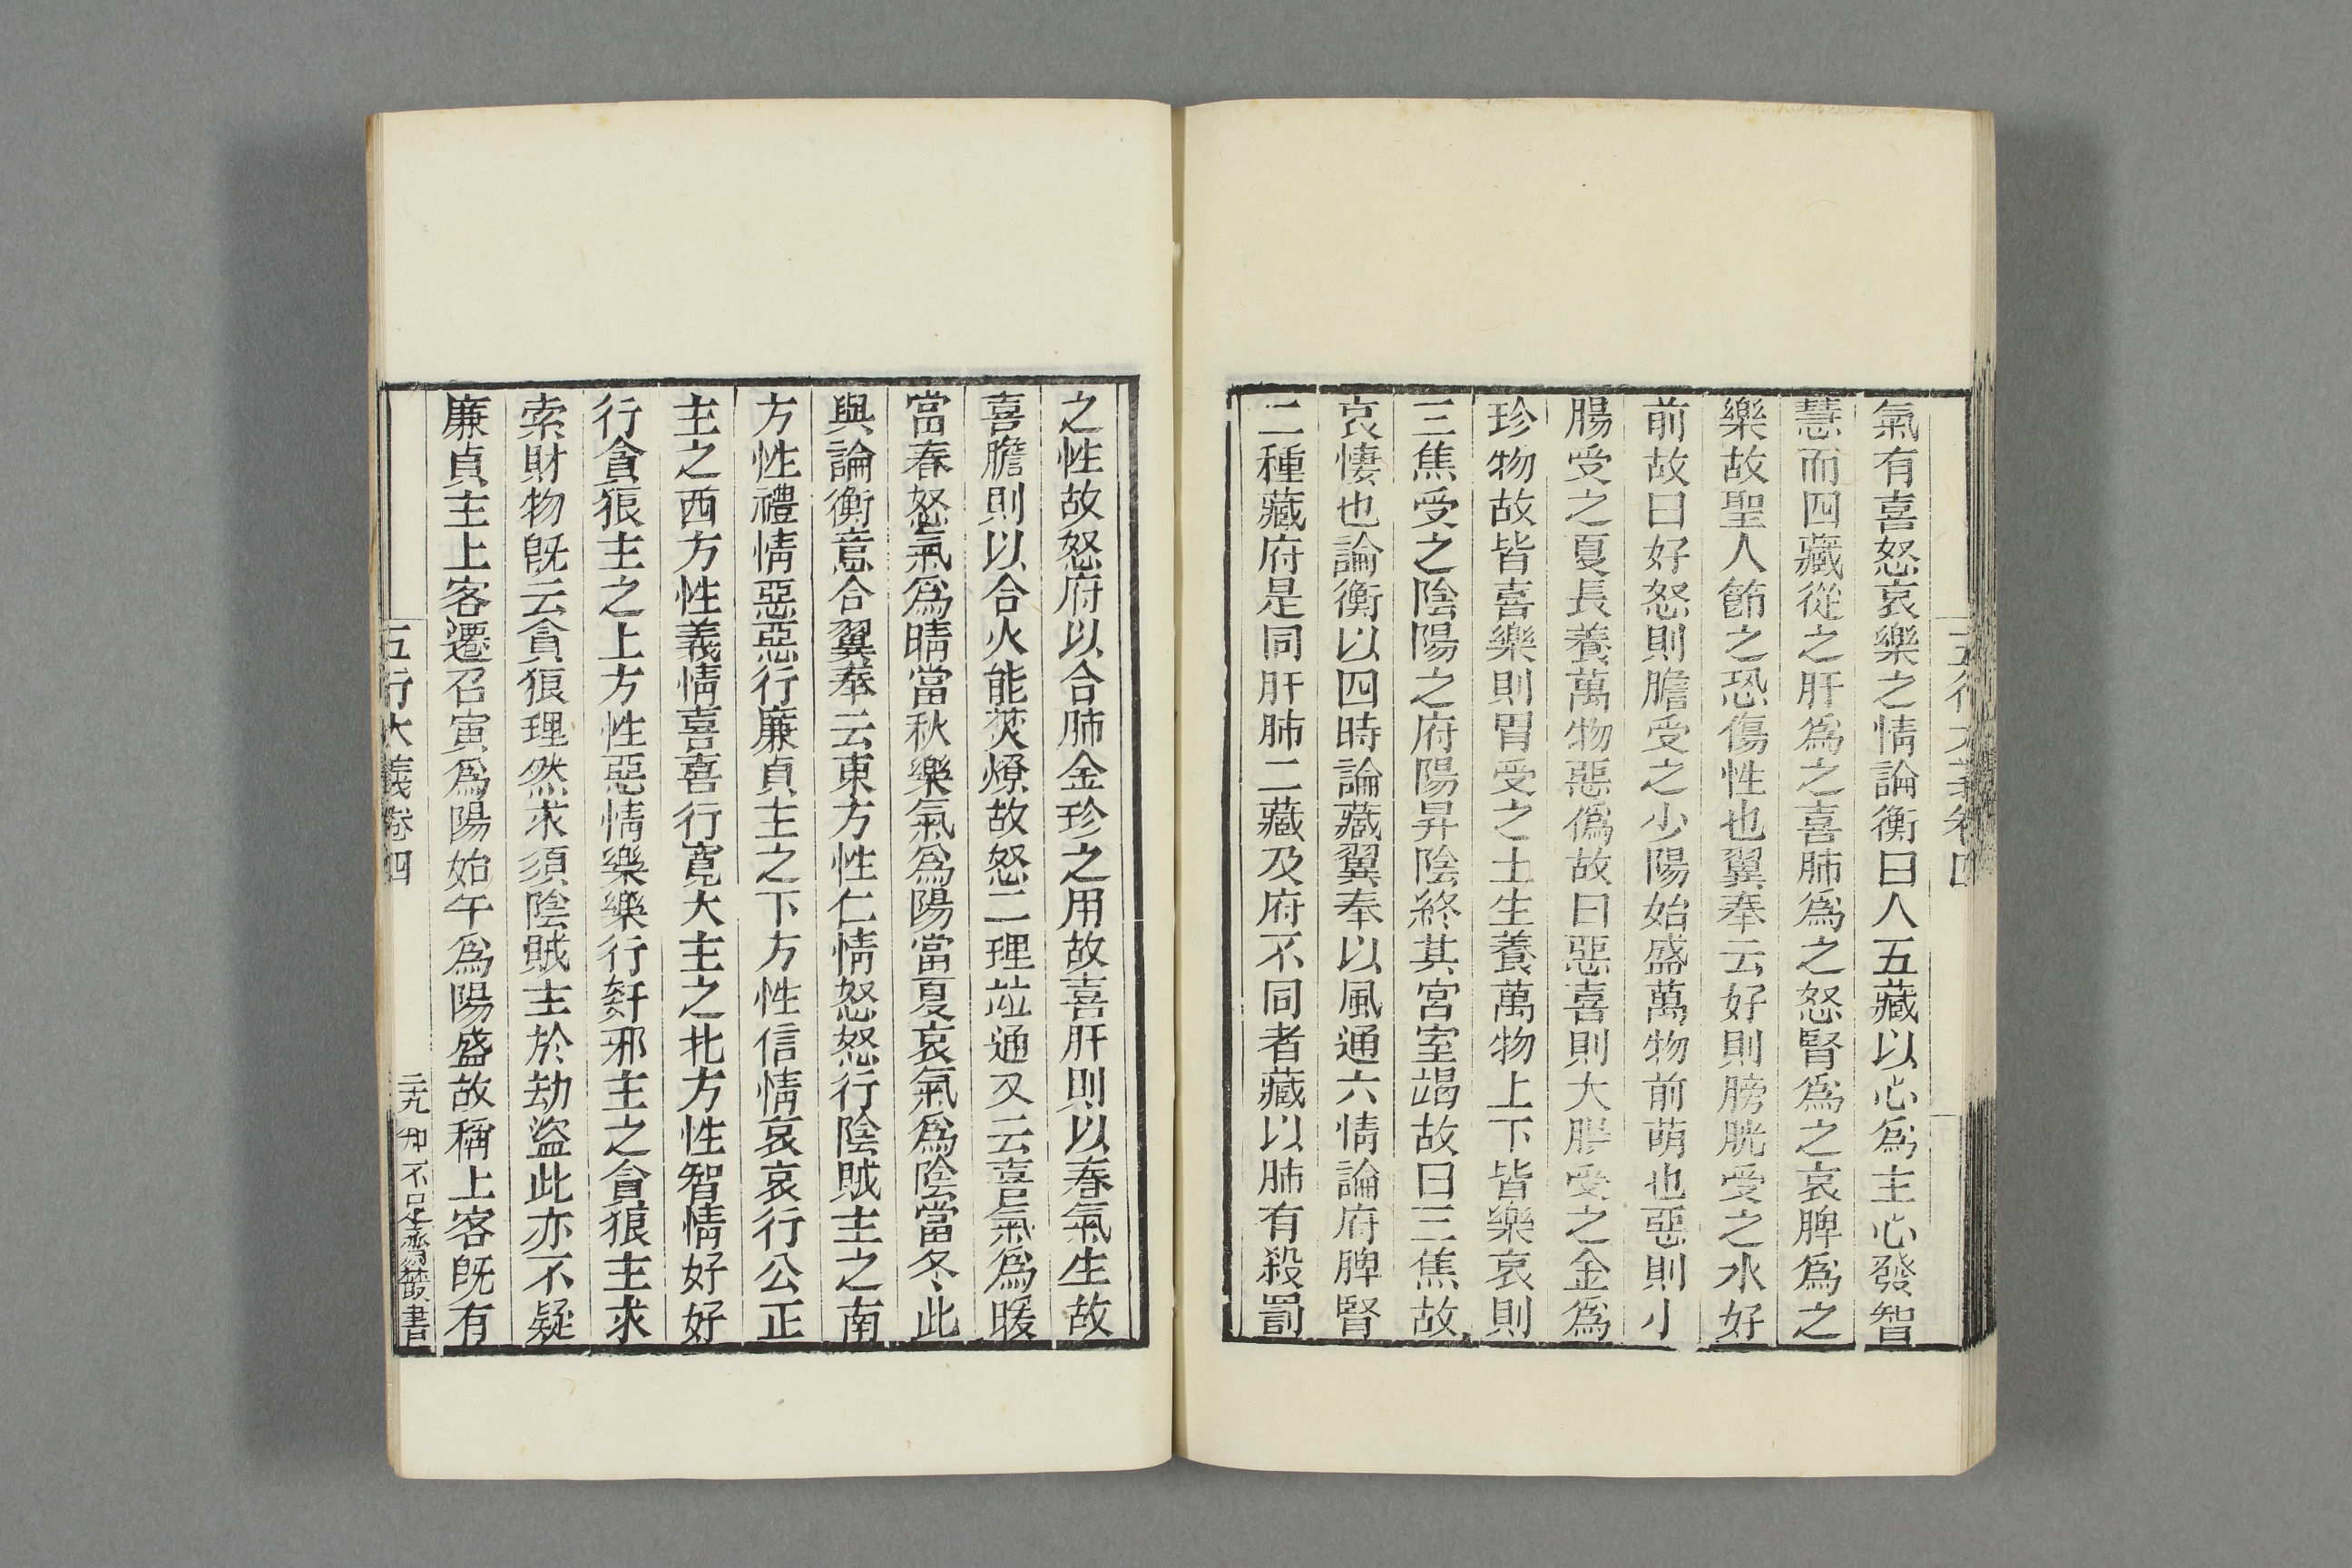 氣有喜怒哀樂之情論衡曰人五藏以心爲主心發智
慧而四藏從之肝爲之喜肺爲之怒腎爲之哀脾爲之
樂故聖人節之恐傷性也翼奉云好則膀胱受之水好
前故曰好怒則膽受之少陽始盛萬物前萌也惡則小
腸受之夏長養萬物惡僞故曰惡喜則大腸受之金爲
珍物故皆喜樂則胃受之土生養萬物上下皆樂哀則
三焦受之陰陽之府陽昇陰終其宮室竭故曰三焦故
哀悽也論衡以四時論藏翼奉以風通六情論府脾腎
二種藏府是同肝肺二藏及府不同者藏以肺有殺罰
之性故怒府以合肺金珍之用故喜肝則以春氣生故
喜膽則以合火能焚燎故怒二理竝通又云喜氣爲暖
當春怒氣爲晴當秋樂氣爲陽當夏哀氣爲陰當冬此
與論衡意合翼奉云東方性仁情怒怒行陰賊主之南
方性禮情惡惡行廉貞主之下方性信情哀哀行公正
主之西方性義情喜喜行寬大主之北方性智情好好
行貪狼主之上方性惡情樂樂行姧邪主之貪狼主求
索財物旣云貪狼理然求須陰賊主於劫盜此亦不疑
廉貞主上客遷召寅爲陽始午爲陽盛故稱上客旣有
五行大義卷四
二九 知不足齋叢書